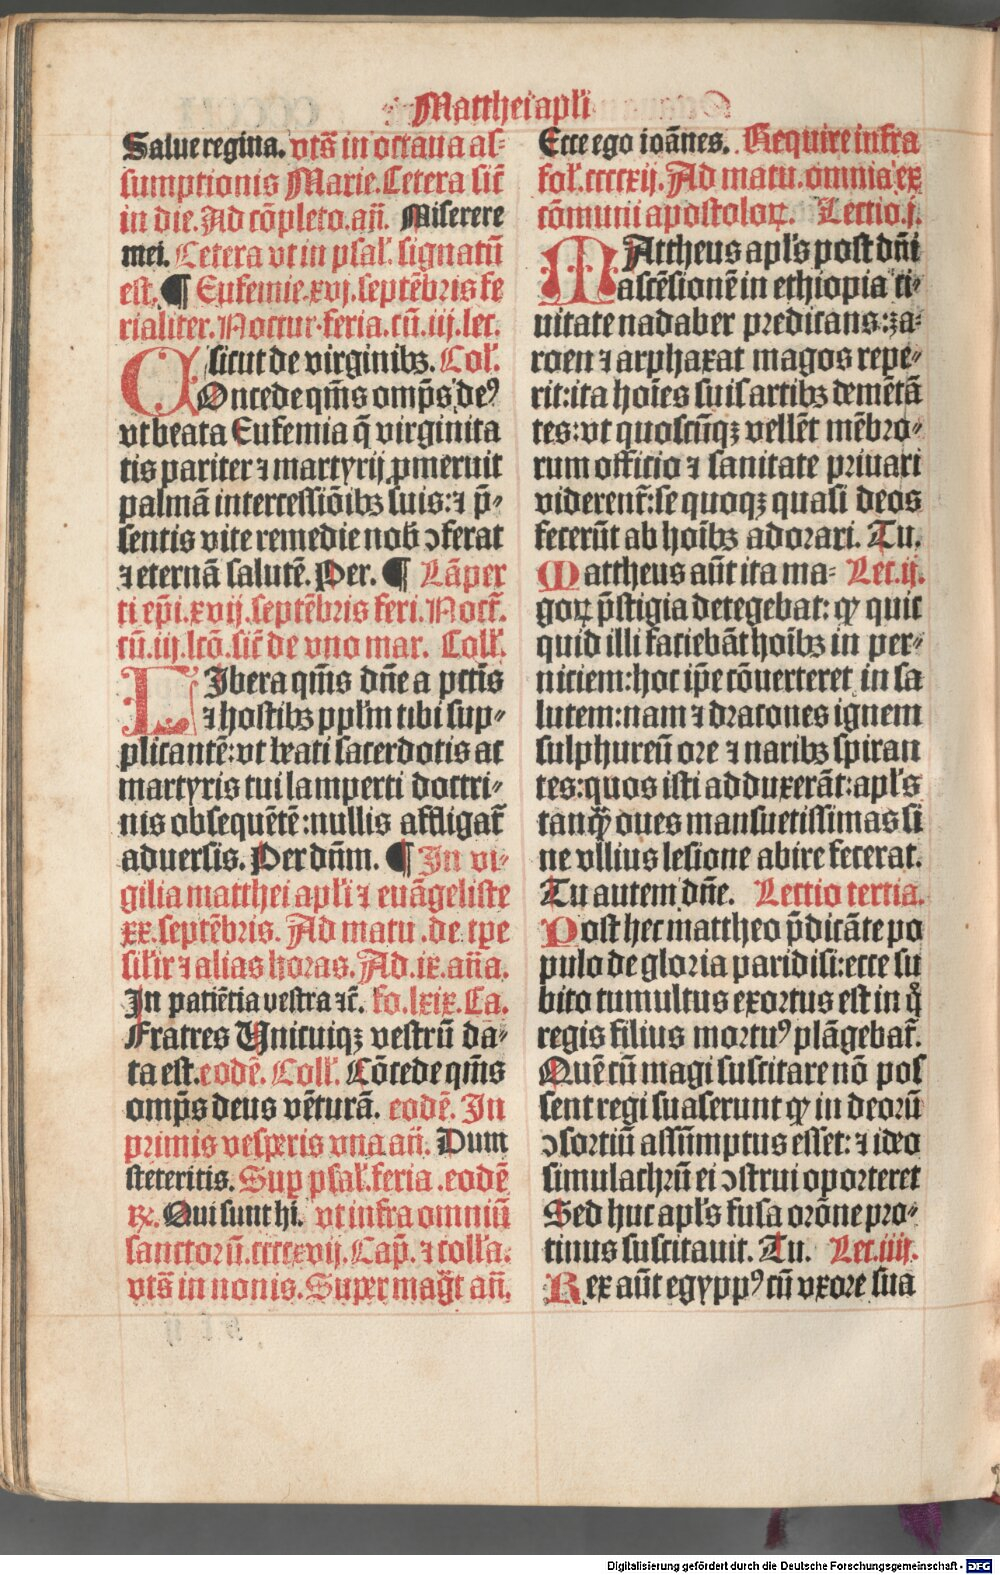 Matthei apl'i
Salue regina. vts̄ in octaua as-
sumptionis Marie. Cetera sic̄
in die. Ad cōpleto. an̄. Miserere
mei. Cetera vt in psal'. signatū
est. ¶ Eufemie. xvj. septēbris fe
rialiter. Noctur. feria. cū. iij. lec.
sicut de virginibꝫ. Col'.
COncede qm̄s omp̄s deꝰ
vt beata Eufemia q̄ virginita
tis pariter ⁊ martyrij ꝓmeruit
palmā intercessiōibꝫ suis: ⁊ p̄-
sentis vite remedie nob̄ ↄferat
⁊ eternā salutē. Per. ¶ Lāper
ti ep̄i. xvij. septēbris feri. Noct̄.
cū. iij. lcō. sic̄ de vno mar. Coll'.
LIbera qm̄s dn̄e a pctīs
⁊ hostibꝫ ppl'm tibi sup-
plicantē: vt beati sacerdotis ac
martyris tui lamperti doctri-
nis obsequētē: nullis affligat̄
aduersis. Per dn̄m. ¶ In vi-
gilia matthei apl'i ⁊ euāgeliste
xx. septēbris. Ad matu. de tꝑe
sil'ir ⁊ alias horas. Ad. ix. an̄a.
In patiētia vestra ⁊c̄. fo. lxix. Ca.
Fratres Unicuiqꝫ vestrū da-
ta est. eodē. Coll'. Cōcede qm̄s
omp̄s deus vēturā. eodē. In
primis vesperis vna an̄. Dum
steteritis. Suꝑ psal'. feria. eodē
℞. Qui sunt hi. vt infra omniū
sanctorū. ccccxvij. Cap̄. ⁊ coll'a.
vts̄ in nonis. Super maḡt an̄.
Ecce ego ioānes. Require infra
fol'. ccccxij. Ad matu. omnia ex
cōmuni apostoloꝝ. Lectio. j.
MAttheus apl's post dn̄i
ascēsionē in ethiopia ci-
uitate nadaber predicans: za-
roen ⁊ arphaxat magos repe-
rit: ita hoīes suis artibꝫ demētā
tes: vt quoscūqꝫ vellēt mēbro-
rum officio ⁊ sanitate priuari
viderent̄: se quoqꝫ quasi deos
fecerūt ab hoībꝫ adorari. Tu.
Mattheus aūt ita ma- Lec. ij.
goꝝ p̄stigia detegebat: qꝙ quic
quid illi faciebāt hoībꝫ in per-
niciem: hoc ip̄e cōuerteret in sa
lutem: nam ⁊ dracones ignem
sulphureū ore ⁊ naribꝫ spiran
tes: quos isti adduxerāt: apl's
tanqꝙ̄ oues mansuetissimas si
ne vllius lesione abire fecerat.
Tu autem dn̄e. Lectio tertia.
Post hec mattheo p̄dicāte po
pulo de gloria paridisi: ecce su
bito tumultus exortus est in q̊
regis filius mortuꝰ plāgebat̄.
Quē cū magi suscitare nō pos
sent regi suaserunt qꝙ in deorū
ↄsortiū assūmptus esset: ⁊ ideo
simulachrū ei ↄstrui oporteret
Sed huc apl's fusa orōne pro-
tinus suscitauit. Tu. Lec. iiij.
Rex aūt egyppꝰ cū vxore sua
Digitalisierung gefördert durch die Deutsche Forschungsgemeinschaft - DFG